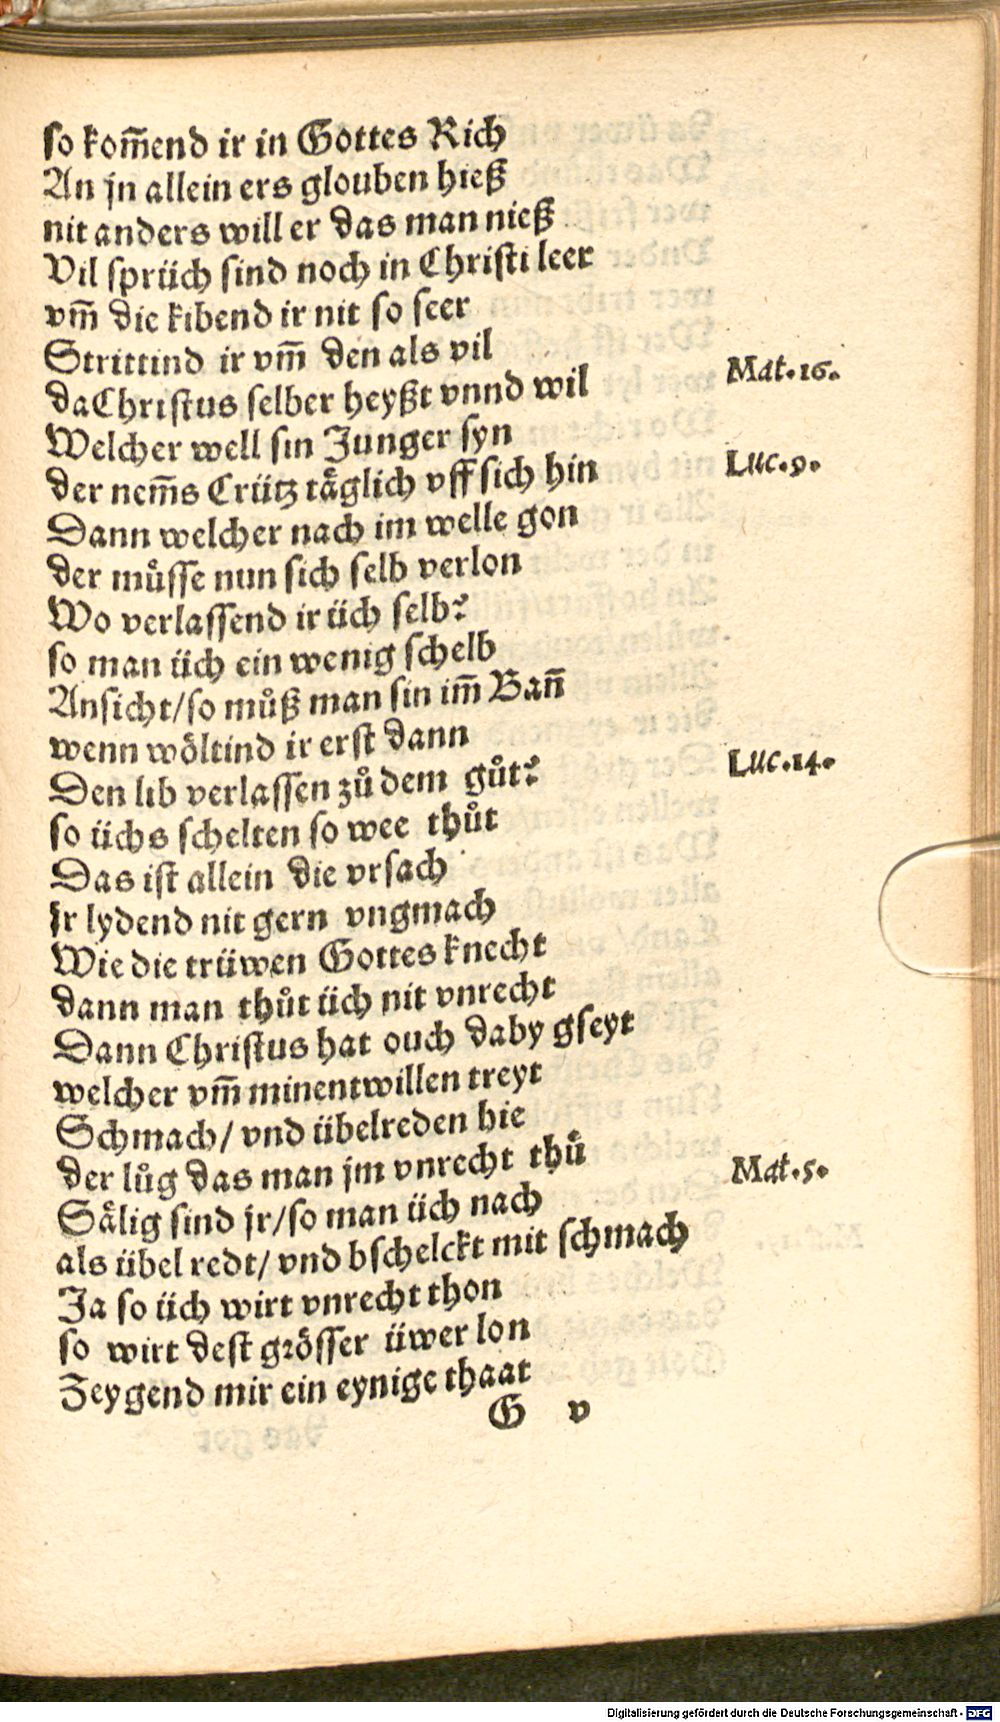 so kom̄end ir in Gottes Rich
An jn allein ers glouben hieß
nit anders will er das man nieß
Vil sprüch sind noch in Christi leer
vm̄ die kibend ir nit so seer
Strittind ir vm̄ den als vil
da Christus selber heyßt vnnd wil
Mat.16.
Welcher well sin Junger syn
der nem̄s Crütz täglich vff sich hin
Luc.9.
Dann welcher nach im welle gon
der můsse nun sich selb verlon
Wo verlassend ir üch selb?
so man üch ein wenig schelb
Ansicht/so můß man sin im̄ Ban̄
wenn wöltind ir erst dann
Den lib verlassen zů dem gůt?
Luc.14.
so üchs schelten so wee thůt
Das ist allein die vrsach
jr lydend nit gern vngmach
Wie die trüwen Gottes knecht
dann man thůt üch nit vnrecht
Dann Christus hat ouch daby gseyt
welcher vm̄ minentwillen treyt
Schmach/ vnd übelreden hie
der lůg das man jm vnrecht thů
Mat.5.
Sälig sind jr/so man üch nach
als übel redt/ vnd bschelckt mit schmach
Ja so üch wirt vnrecht thon
so wirt dest grösser üwer lon
Zeygend mir ein eynige thaat
G v
Digitalisierung gefördert durch die Deutsche Forschungsgemeinschaft - DFG